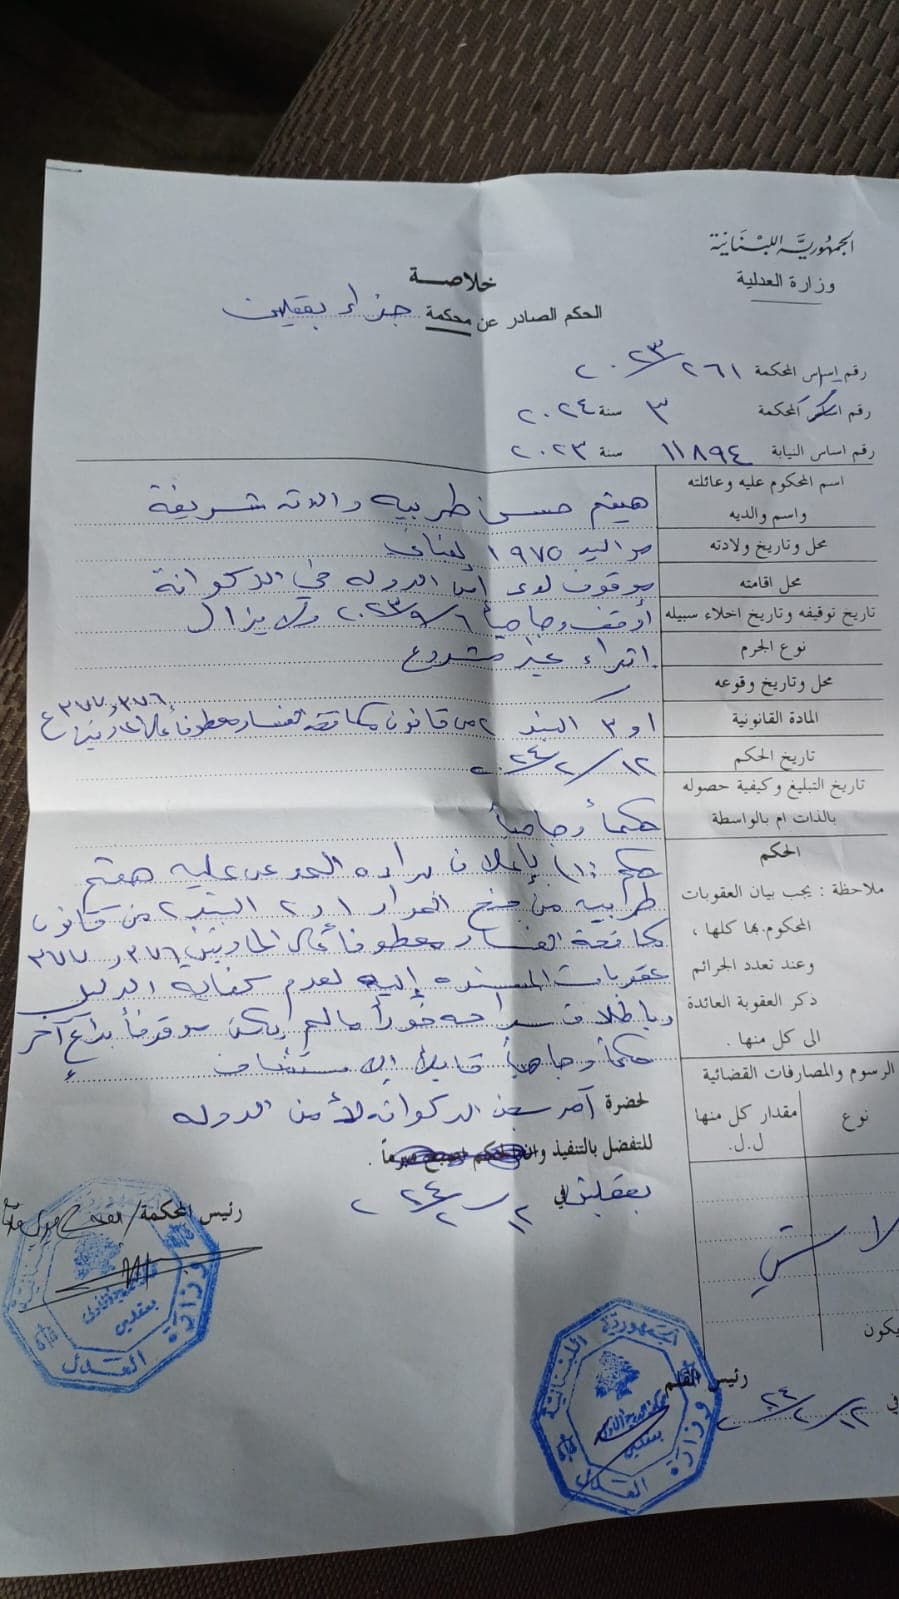 الجمهورية اللبنانية
وزارة العدلية
خلاصة
الحكم الصادر عن محكمة جزاء بعقلين
رقم اساس المحكمة ٢٦١ / ٢٠٢٣
رقم المحكمة ٣ سنة ٢٠٢٤
رقم اساس النيابة ١١٨٩٤ سنة ٢٠٢٣
اسم المحكوم عليه وعائلته
واسم والديه
هيثم حسن طربيه والدته شريفة
محل وتاريخ ولادته مواليد ١٩٧٥ لبناني
محل اقامته موقوف لدى أمن الدوله في الدكوانة
تاريخ توقيفه وتاريخ اخلاء سبيله أوقف وجاهياً ٦/٩/٢٠٢٣ ولا يزال
نوع الجرم اثراء غير مشروع
محل وتاريخ وقوعه
المادة القانونية ١ و ٣ البند ٢ من قانون مكافحة الفساد معطوفاً على المادتين ٣٧٦ و ٣٧٧ ع
تاريخ الحكم ١٢/٢/٢٠٢٤
تاريخ التبليغ وكيفية حصوله
بالذات ام بالواسطة
حكماً وجاهياً
الحكم
ملاحظة : يجب بيان العقوبات
المحكوم بها كلها ،
وعند تعدد الجرائم
ذكر العقوبة العائدة
الى كل منها .
حكم : ١) بإعلان براءة المدعى عليه هيثم
طرابيه من جنح المواد ١ و ٢ البند ٢ من قانون
مكافحة الفساد معطوفاً على المادتين ٣٧٦ و ٣٧٧
عقوبات المسنده إليه لعدم كفاية الدليل
وبإطلاق سراحه فوراً ما لم يكن موقوفاً بداعٍ آخر
حكماً وجاهياً قابلاً للاستئناف
الرسوم والمصارفات القضائية
نوع
مقدار كل منها
ل.ل.
لا شيء
يكون
لحضرة آمر سجن الدكوانه لأمن الدوله
للتفضل بالتنفيذ
بعقلين في ١٢/٢/٢٠٢٤
رئيس المحكمة /
رئيس القلم
في ١٢/٢/٢٠٢٤
الجمهورية اللبنانية
وزارة العدل
بعقلين
وزارة العدل
بعقلين